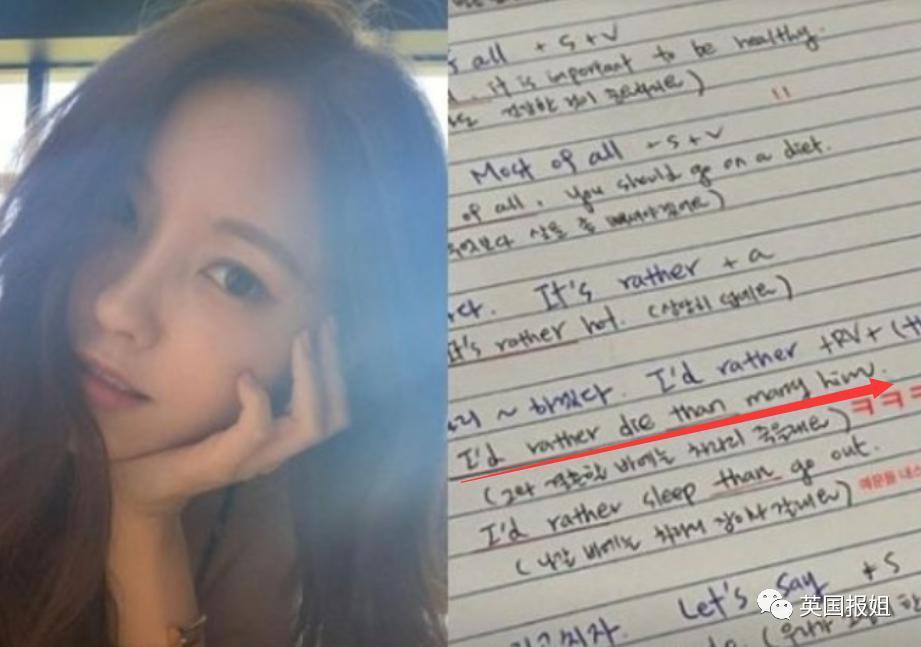 s all + S + V
it is important to be healthy.
Most of all + S + V
of all, you should go on a diet.
It's rather + a
It's rather hot. (상당히 덥네요)
I'd rather +RV+
I'd rather die than marry him.
ㅋㅋㅋ
(그와 결혼할 바에는 차라리 죽을래요)
I'd rather sleep than go out.
예문들 내스
(나갈 바에는 차라리 잠이나 잘래요)
Let's say + S
英国报姐